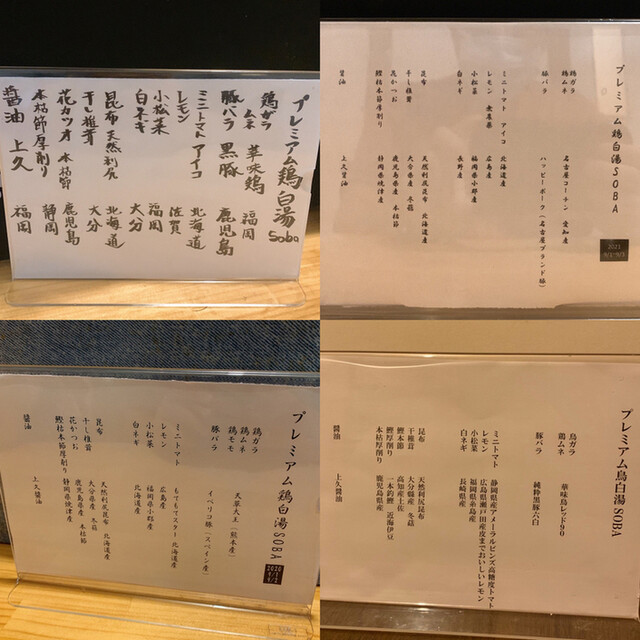 プレミアム鶏白湯 Soba
鶏ガラ
ムネ 華味鶏 福岡
豚バラ 黒豚 鹿児島
ミニトマト アイコ 北海道
レモン 佐賀
小松菜 福岡
白ネギ 大分
昆布 天然利尻 北海道
干し椎茸 大分
花カツオ 本枯節 鹿児島
本枯節厚削り 静岡
醤油 上久 福岡
プレミアム鶏白湯SOBA
2021
9/1-9/3
鶏ガラ
鶏ムネ 名古屋コーチン 愛知産
豚バラ ハッピーポーク(名古屋ブランド豚)
ミニトマト アイコ 北海道産
レモン 無農薬 広島産
小松菜 福岡県小郡産
白ネギ 長野産
昆布 天然利尻昆布 北海道産
干し椎茸 大分県産 冬菇
花かつお 鹿児島県産 本枯節
鰹枯本節厚削り 静岡県焼津産
醤油 上久醤油
プレミアム鶏白湯SOBA
2020
9/1
9/2
鶏ガラ
鶏ムネ 天草大王(熊本産)
鶏モモ
豚バラ イベリコ豚(スペイン産)
ミニトマト もてもてスター 北海道産
レモン 広島産
小松菜 福岡県小郡産
白ネギ 北海道産
昆布 天然利尻昆布 北海道産
干し椎茸 大分県産 冬菇
花かつお 鹿児島県産 本枯節
鰹枯本節厚削り 静岡県焼津産
醤油 上久醤油
プレミアム鳥白湯SOBA
鳥ガラ
鶏ムネ 華味鳥レッド90
豚バラ 純粋黒豚六白
ミニトマト 静岡県産アメーラルビンズ高糖度トマト
レモン 広島県瀬戸田産皮までおいしいレモン
小松菜 福岡県糸島産
白ネギ 長崎県産
昆布 天然利尻昆布
干椎茸 大分縣産 冬菇
鰹本節 高知産土佐
鰹厚削り 一本釣鰹 近海伊豆
本枯厚削り 鹿児島県産
醤油 上久醤油